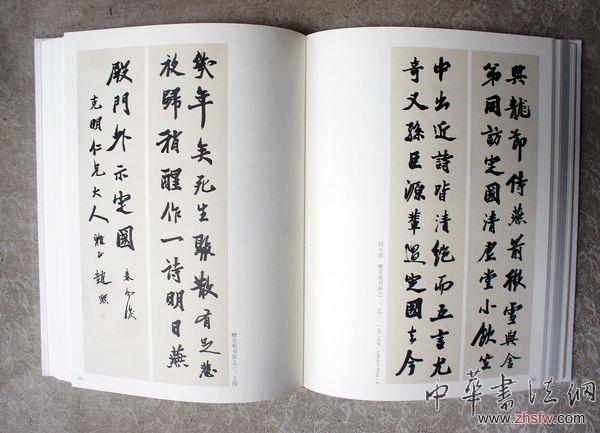 興龍節侍燕前微雪與舍
弟同訪定國清虛堂小飲坐
中出近詩皆清絕而五言尤
奇又孫巨源輩過定國去今
四十四 贈克明书屏之一、之二
幾年矣死生聚散有足悲
夜歸稍醒作一詩明日燕
殿門外示定國
克明仁兄大人 雅正 趙熙
贈克明书屏之三、之四
中華書法網
www.zhsfw.com